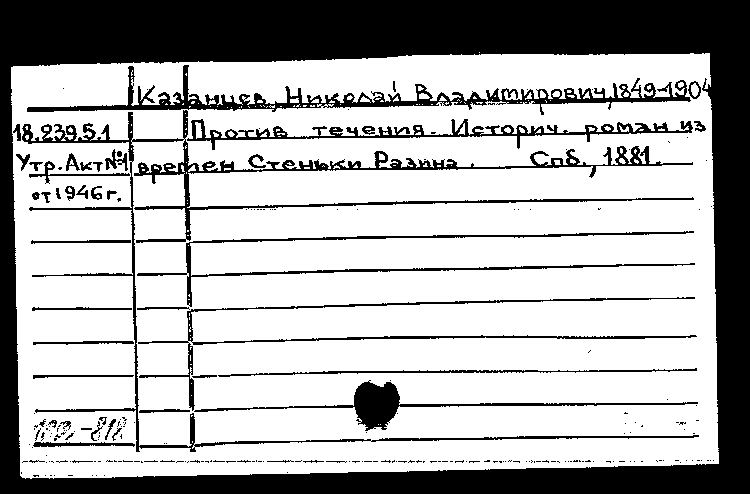 Казанцев, Николай Владимирович, 1849-1904
18.239.5.1 Против течения. Историч. роман из
Утр. Акт №1 времен Стеньки Разина. Спб., 1881.
от 1946 г.